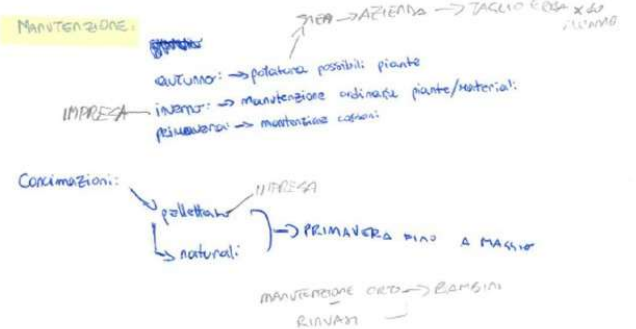 MANUTENZIONE:
AZIENDA → TAGLIO ERBA x
autunno: → potatura possibili piante
IMPRESA
inverno: → manutenzione ordinaria piante/materiali
primavera: → manutenzione
Concimazioni:
IMPRESA
pellettato
→ PRIMAVERA FINO A MAGGIO
→ naturali
MANUTENZIONE ORTO → BAMBINI
RINVASI